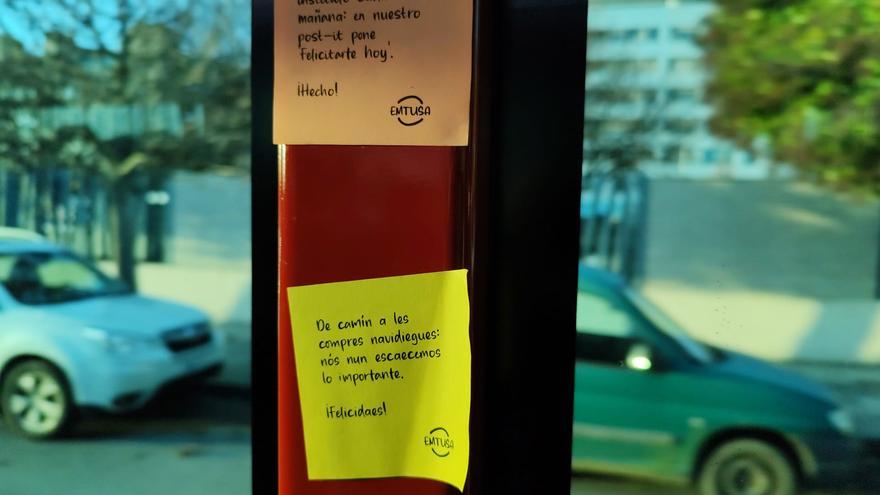 mañana: en nuestro
post-it pone
'Felicitarte hoy'.
¡Hecho!
EMTUSA
De camín a les
compres navidiegues:
nós nun escaecemos
lo importante.
¡Felicidaes!
EMTUSA